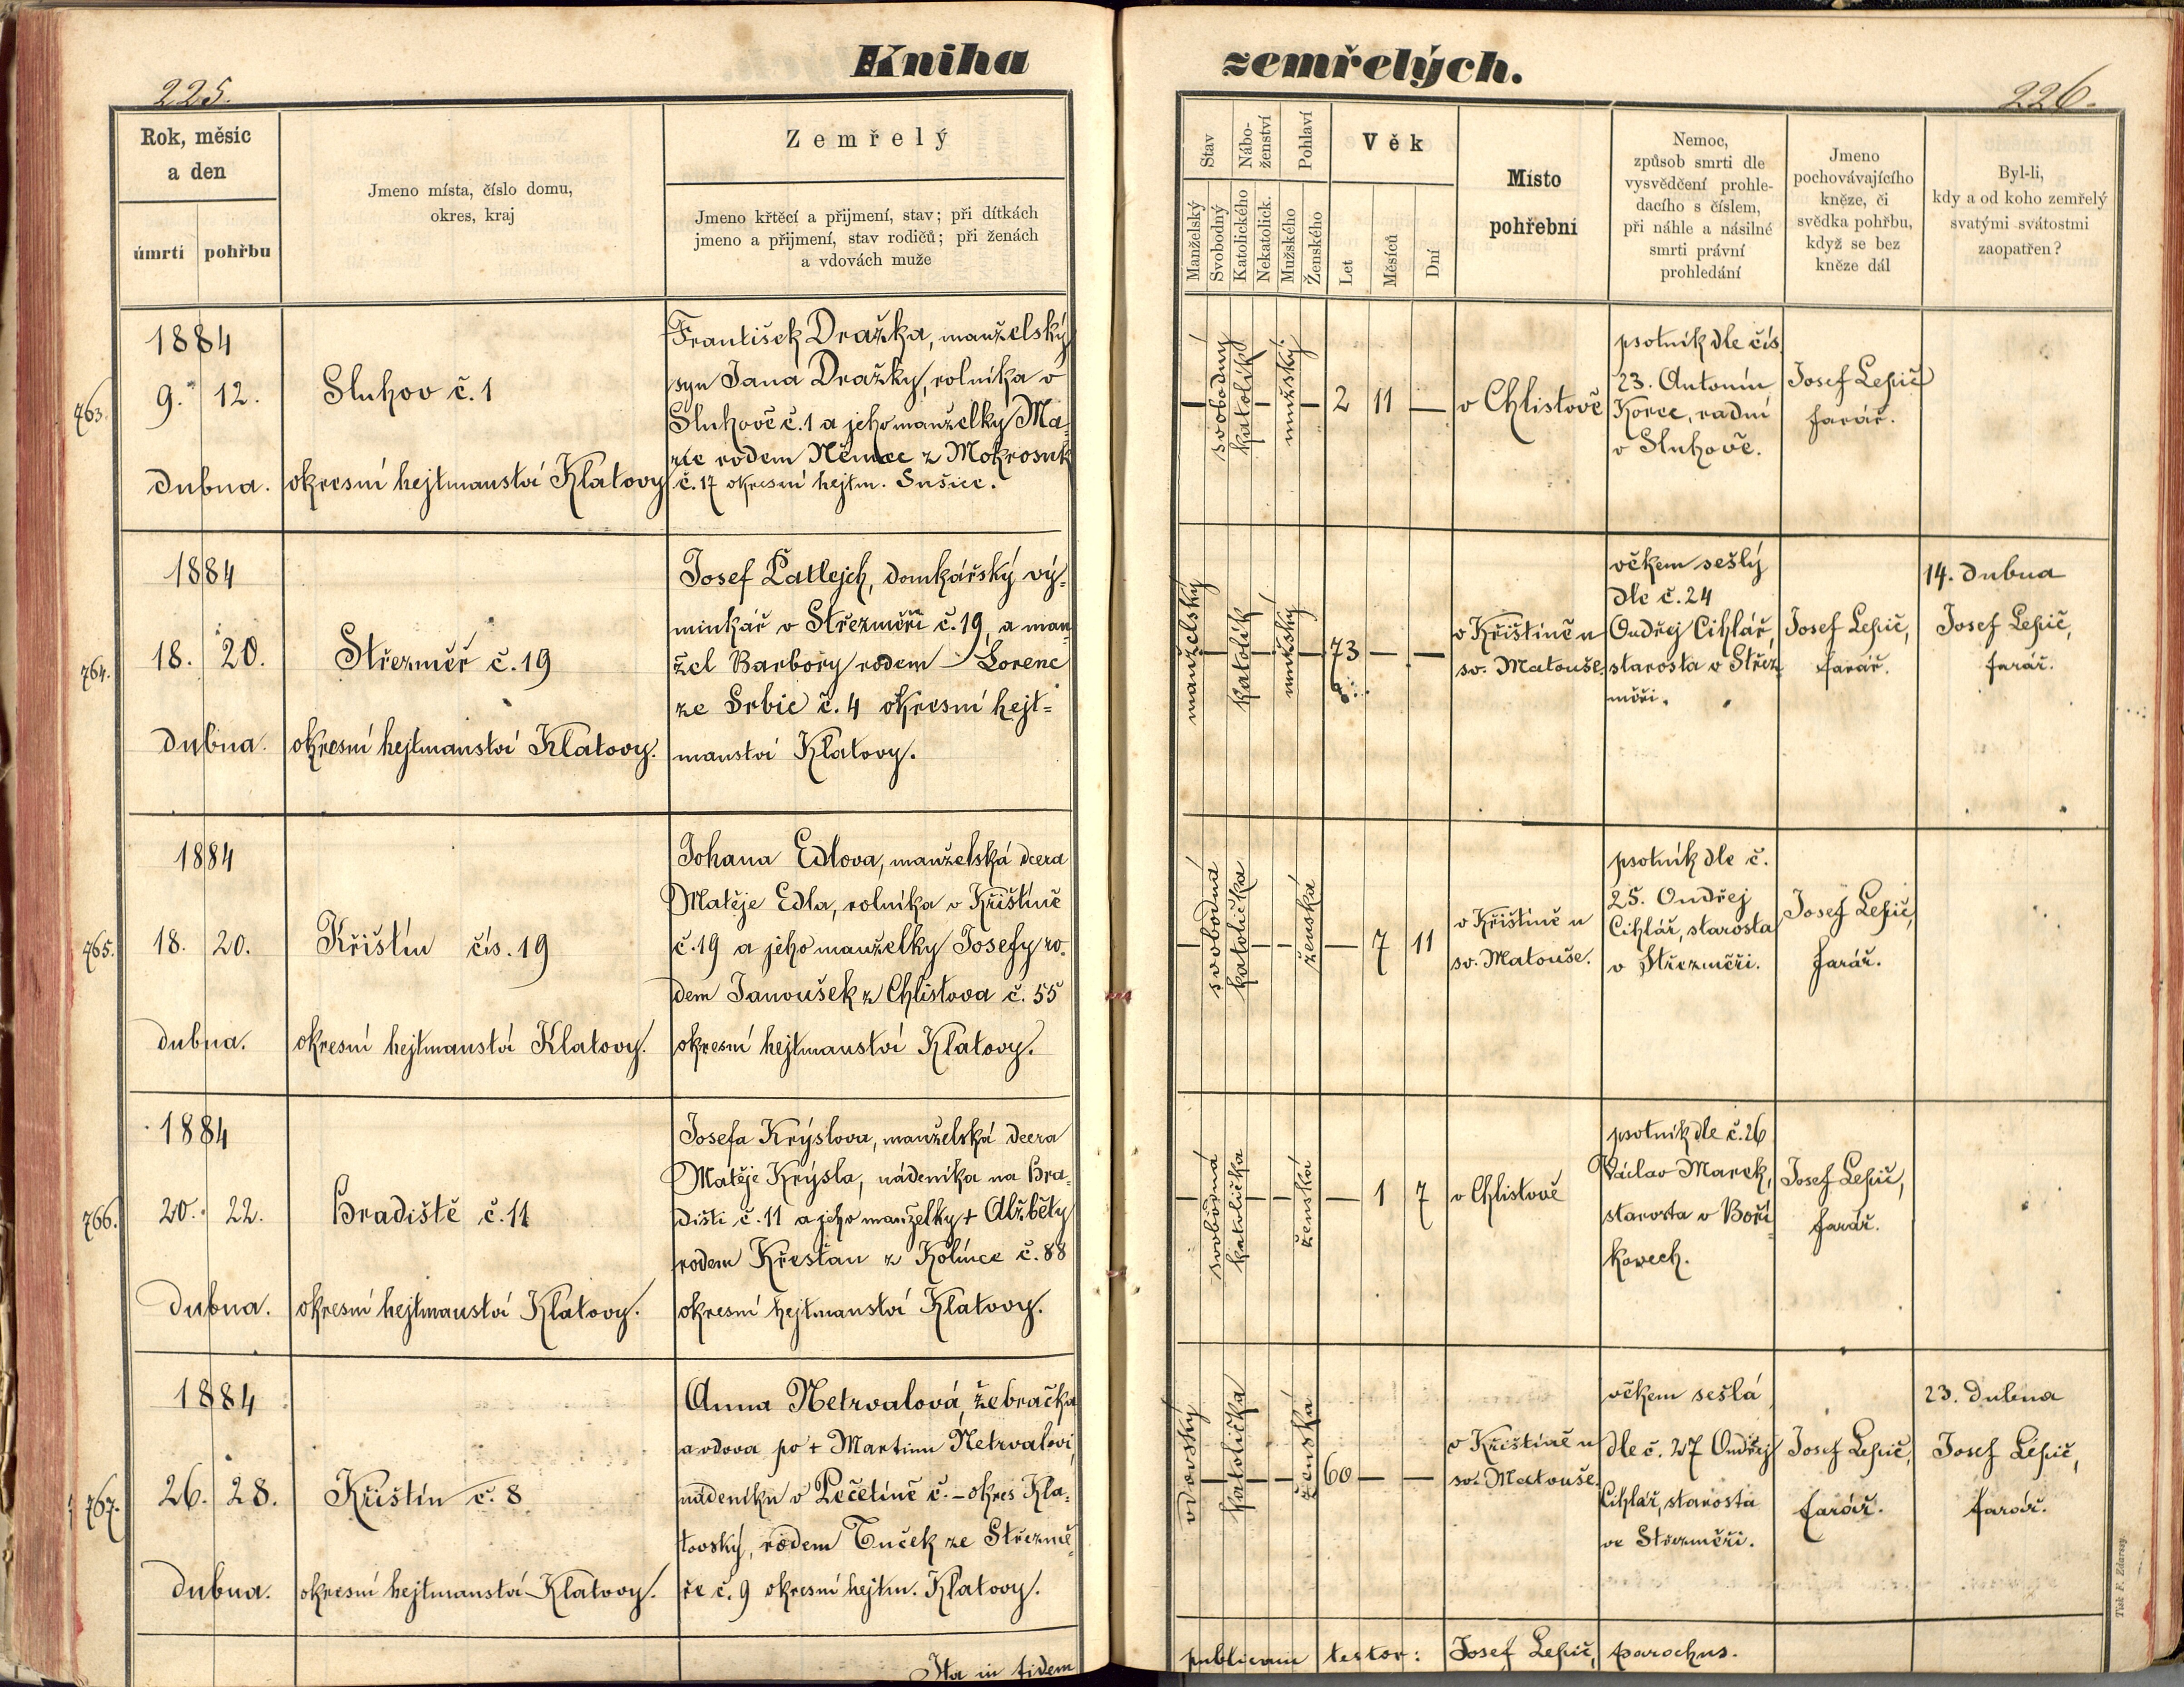 Kniha zemřelých.
225.
226.
Rok, měsíc
a den
úmrtí
pohřbu
Jmeno místa, číslo domu,
okres, kraj
Zemřelý
Jmeno křtěcí a přijmení, stav; při dítkách
jmeno a přijmení, stav rodičů; při ženách
a vdovách muže
Stav
Manželský
Svobodný
Nábo-
ženství
Katolického
Nekatolick.
Pohlaví
Mužského
Ženského
Věk
Let
Měsíců
Dní
Místo
pohřební
Nemoc,
způsob smrti dle
vysvědčení prohle-
dacího s číslem,
při náhle a násilné
smrti právní
prohledání
Jmeno
pochovávajícího
kněze, či
svědka pohřbu,
když se bez
kněze dál
Byl-li,
kdy a od koho zemřelý
svatými svátostmi
zaopatřen?
763.
1884
9. 12.
dubna.
Sluhov č. 1
okresní hejtmanství Klatovy
František Dražka, manželský
syn Jana Dražky, rolníka v
Sluhově č. 1 a jeho manželky Ma-
rie rodem Němec z Mokrosuk
č. 17 okresní hejtm. Sušice.
—
svobodný
katolík
—
mužský
—
2 11 —
v Chlistově
psotník dle čís.
23. Antonín
Korec, radní
v Sluhově.
Josef Lepič
farář.
764.
1884
18. 20.
dubna.
Střezměř č. 19
okresní hejtmanství Klatovy.
Josef Patlejch, domkářský vý-
minkář v Střezměři č. 19, a man-
žel Barbory rodem Lorenc
ze Srbic č. 4 okresní hejt=
manství Klatovy.
manželský
—
katolík
—
mužský
—
73 — —
v Křištíně u
sv. Matouše.
věkem sešlý
dle č. 24
Ondřej Cihlář,
starosta v Střez-
měři.
Josef Lepič,
farář.
14. dubna
Josef Lepič,
farář.
765.
1884
18. 20.
dubna.
Křištín čís. 19
okresní hejtmanství Klatovy.
Johana Edlova, manželská dcera
Matěje Edla, rolníka v Křištíně
č. 19 a jeho manželky Josefy ro-
dem Janoušek z Chlistova č. 55
okresní hejtmanství Klatovy.
—
svobodná
katolička
—
—
ženská
— 7 11
v Křištíně u
sv. Matouše.
psotník dle č.
25. Ondřej
Cihlář, starosta
v Střezměři.
Josef Lepič,
farář.
766.
1884
20. 22.
dubna.
Hradiště č. 11
okresní hejtmanství Klatovy.
Josefa Krýslova, manželská dcera
Matěje Krýsla, nádeníka na Hra-
dišti č. 11 a jeho manželky + Alžběty
rodem Křesťan z Kolínce č. 88
okresní hejtmanství Klatovy.
—
svobodná
katolička
—
—
ženská
— 1 7
v Chlistově
psotník dle č. 26
Václav Marek,
starosta v Boří-
kovech.
Josef Lepič,
farář.
767.
1884
26. 28.
dubna.
Křištín č. 8
okresní hejtmanství Klatovy.
Anna Netrvalová, žebračka
a vdova po + Martinu Netrvalovi,
nádeníku v Pečetíně č. – okres Kla-
tovský, rodem Tuček ze Střezmě-
ře č. 9 okresní hejtm. Klatovy.
vdovský
—
katolička
—
—
ženská
60 — —
v Křištíně u
sv. Matouše
věkem sešlá
dle č. 27 Ondřej
Cihlář, starosta
ve Střezměři.
Josef Lepič,
farář.
23. dubna
Josef Lepič,
farář.
Ita in fidem
publicam testor: Josef Lepič, parochus.
Tisk F. Zdarssy.